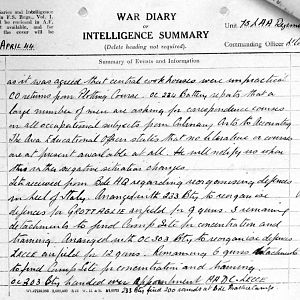 Series and Intelligence
in F.S. Regs., Vol. I.
be reviewed in A.F.
if not available, and
WAR DIARY
OR
INTELLIGENCE SUMMARY
(Delete heading not required).
Unit
Commanding Officer
APRIL 44.
Summary of Events and Information
as it was agreed that central workhouses were impractical
CO returns from Plotting Course. OC 234 Battery reports that a
large number of men are asking for correspondence courses
in all occupational subjects from Culinary Arts to Accounting
The Area Educational Officer states that no literature or courses
are at present available at all. He will notify us when
this rather negative situation changes.
received from Bde HQ regarding reorganising defences
in heel of Italy. Arranged with 233 Bty to reorganise
defences for GROTTAGLIE airfield for 9 guns. 3 remaining
detachments to find Camp Site for concentration and
training. Arranged with OC 303 Bty to reorganise defences
LECCE airfield to 12 guns. Remaining 6 guns
to find Camp Site for concentration and training.
OC 303 Bty handed over Appointment AADC LECCE
233 Bty fired 200 rounds at Bde